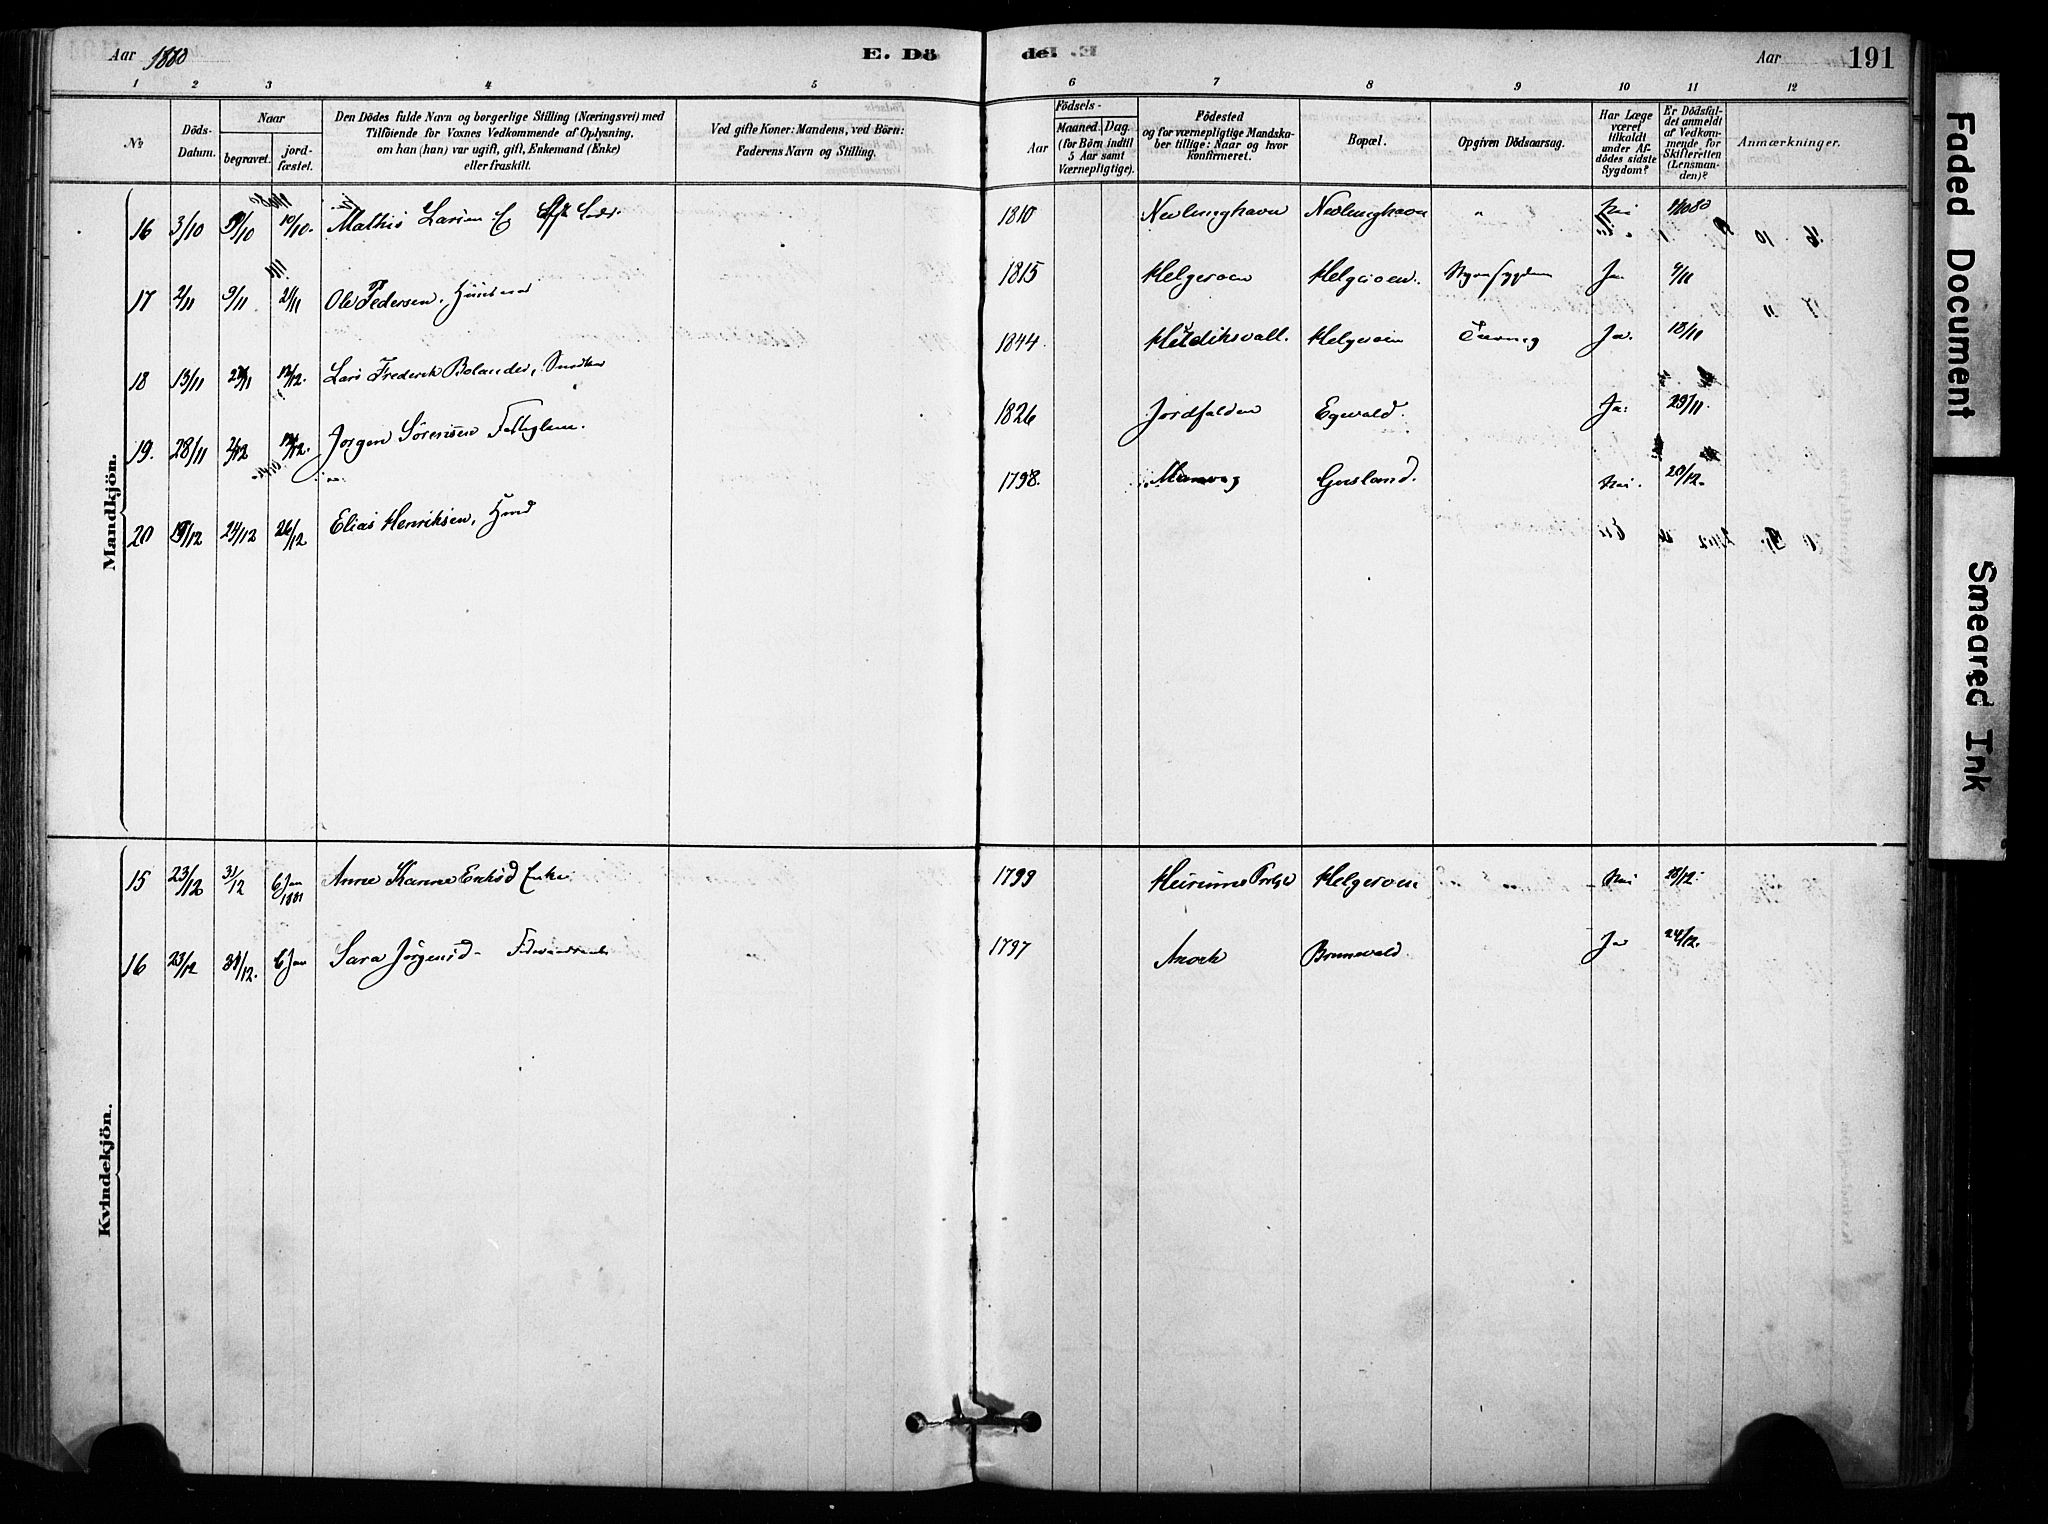 Aar 1880
E. Dö
de.
Aar
191
1 2 3 4 5 6 7 8 9 10 11 12
№
Döds-
Datum.
Naar
begravet.
jord-
fæstet.
Den Dödes fulde Navn og borgerlige Stilling (Næringsvei) med
Tilföiende for Voxnes Vedkommende af Oplysning,
om han (hun) var ugift, gift, Enkemand (Enke)
eller fraskilt.
Ved gifte Koner: Mandens, ved Börn:
Faderens Navn og Stilling.
Födsels-
Aar
Maaned. Dag.
(for Börn indtil
5 Aar samt
Værnepligtige).
Födested
og for værnepligtige Mandska-
ber tillige: Naar og hvor
konfirmeret.
Bopæl.
Opgiven Dödsaarsag.
Har Læge
været
tilkaldt
under Af-
dödes sidste
Sygdom?
Er Dödsfal-
det anmeldt
af Vedkom-
mende for
Skifteretten
(Lensman-
den)?
Anmærkninger.
Mandkjön.
16 3/10 9/10 10/10. Mathis Larsen 1810 Nevlunghavn Nevlunghavn " Nei
17 2/11 9/11 21/11 Ole Pedersen, Huusmand 1815 Helgeroen Helgeroen. Ja
18 13/11 12/12. Lars Frederik Bolander, Snedker 1844 Helgeroen Ja. 18/11
19. 28/11 2/12 12/12. Jorgen Sörensen Fattiglem. 1826 Jordfalden Egevald. Ja. 29/11.
20 19/12 24/12 26/12 Elias Henriksen, 1798. Manvig Gusland. Nei. 20/12.
Kvindekjön.
15 23/12 31/12 6 Jan 1881 Anne Karine Eriksd Enke. 1799 Helgeroen Nei 28/12.
16 23/12 31/12. 6 Jan Sara Jörgensd 1797 Anvik Brunevald. Ja 24/12.
Faded Document
Smeared Ink